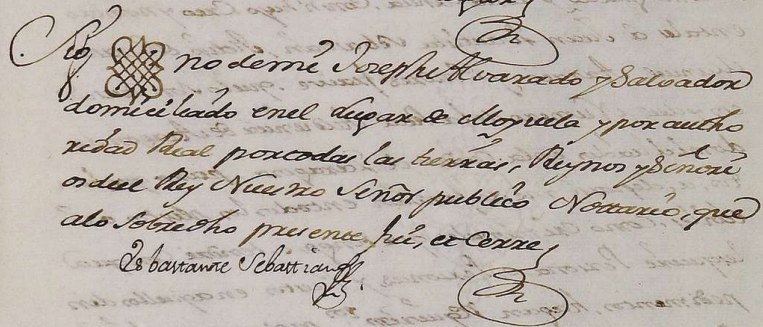 Sig no de mi Joseph Alvarado y Salvador
domiciliado en el Lugar de Moyuela y por autho
ridad Real por todas las tierras, Reynos y Señori
os del Rey Nuestro Señor publico Nottario, que
a lo sobredho presente fui, et Cerre
Es bastante Sebattian